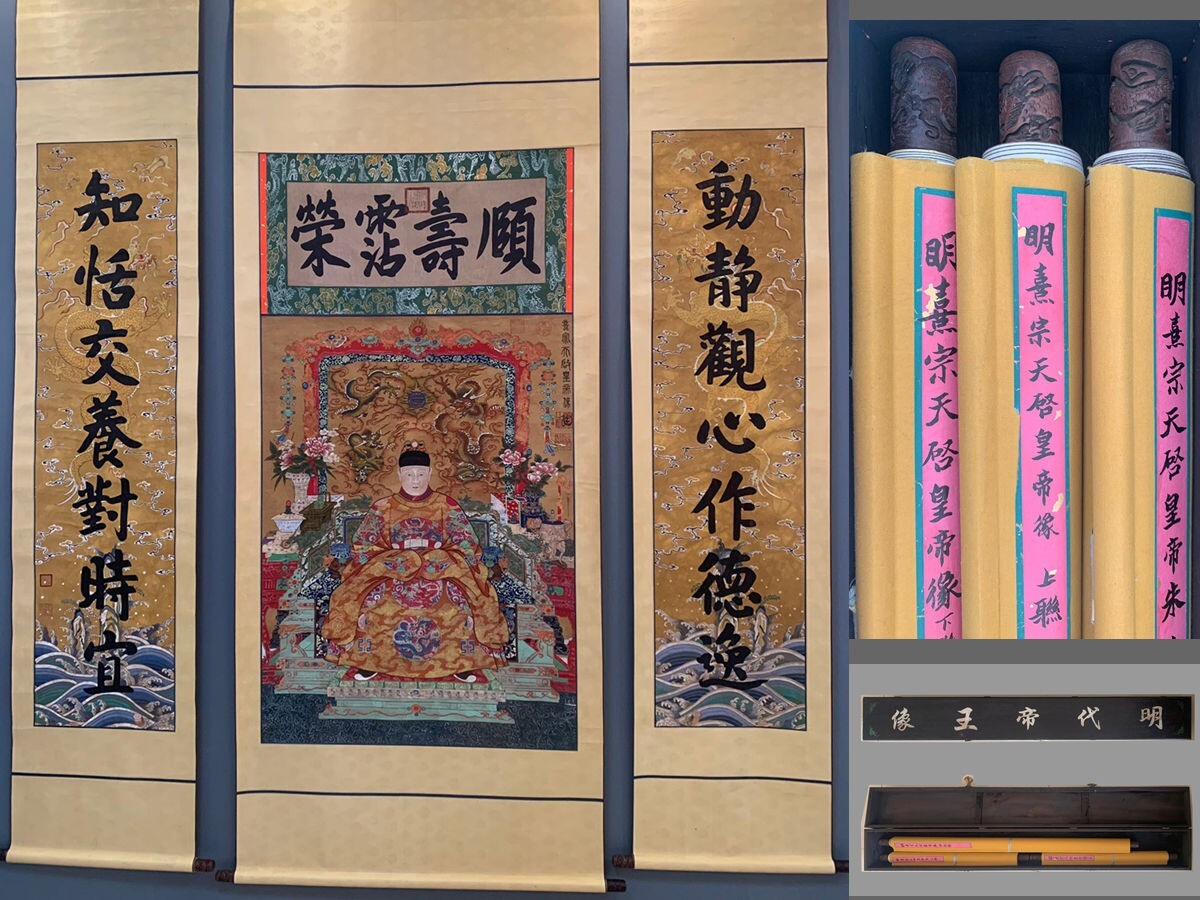 動静觀心作德逸
頤壽霑榮
熹宗天啓皇帝像
知恬交養對時宜
明熹宗天啓皇帝朱
明熹宗天啓皇帝像 上聯
明熹宗天啓皇帝像 下
明代帝王像